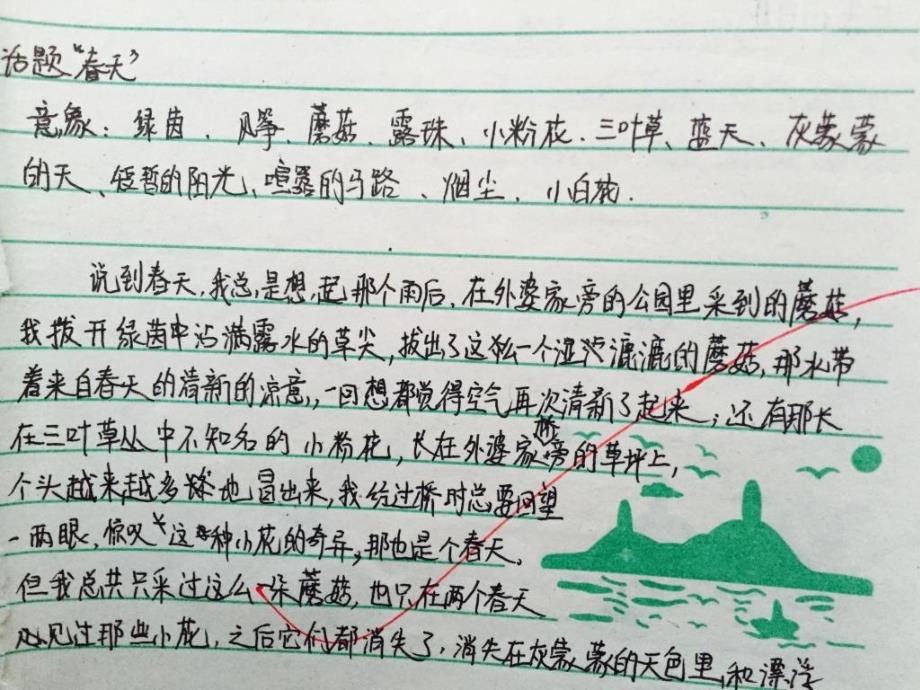 话题“春天”
意象：绿茵、风筝、蘑菇、露珠、小粉花、三叶草、蓝天、灰蒙蒙
的天、短暂的阳光、喧嚣的马路、烟尘、小白菊.
说到春天，我总是想起那个雨后，在外婆家旁的公园里采到的蘑菇，
我拨开绿茵中沾满露水的草尖，拔出了这么一个湿漉漉的蘑菇，那水带
着来自春天的清新的凉意，一回想都觉得空气再次清新了起来；还有那长
在三叶草丛中不知名的小粉花，长在外婆家桥旁的草坪上，
个头越来越多地冒出来，我经过桥时总要回望
一两眼，惊叹于这种小花的奇异，那也是个春天。
但我总共只采过这么一朵蘑菇，也只在两个春天
见过那些小花，之后它们都消失了，消失在灰蒙蒙的天色里，和漂浮